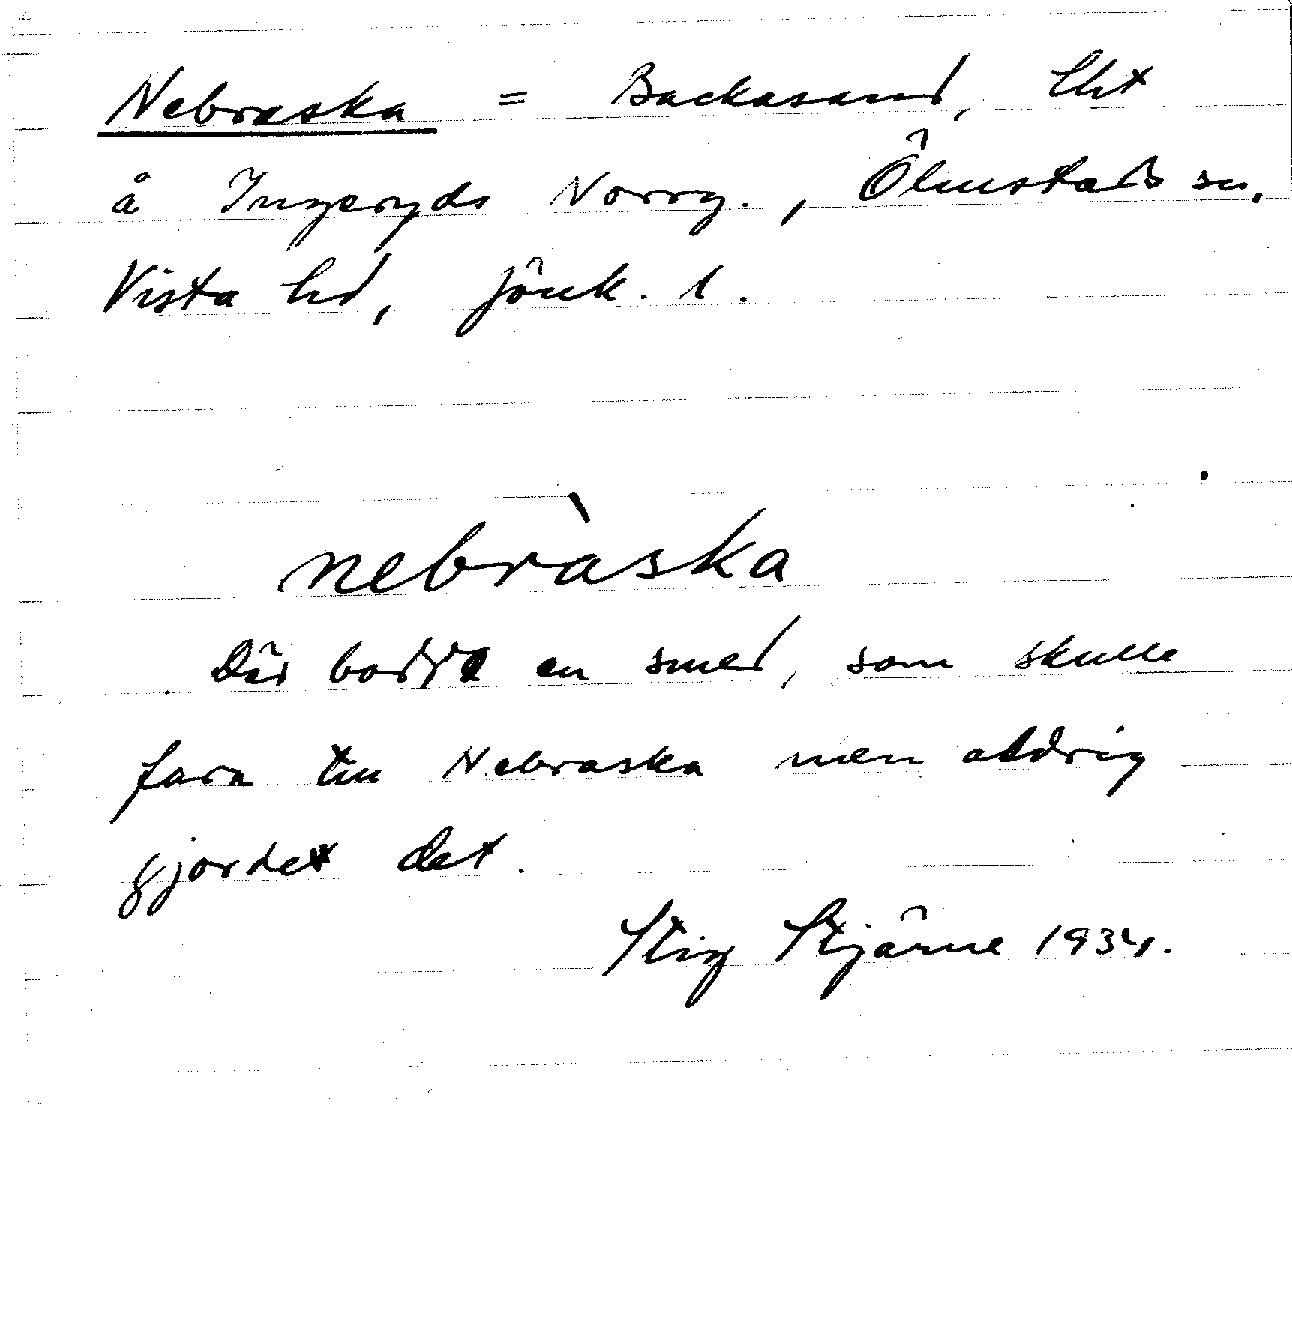 Nebraska = Backasand, lht
å Ingeryds Norrg., Ölmstads sn,
Vista hd, Jönk. l.
nebràska
Där bodde en smed, som skulle
fara till Nebraska men aldrig
gjorde det.
Stig Stjärne 1934.